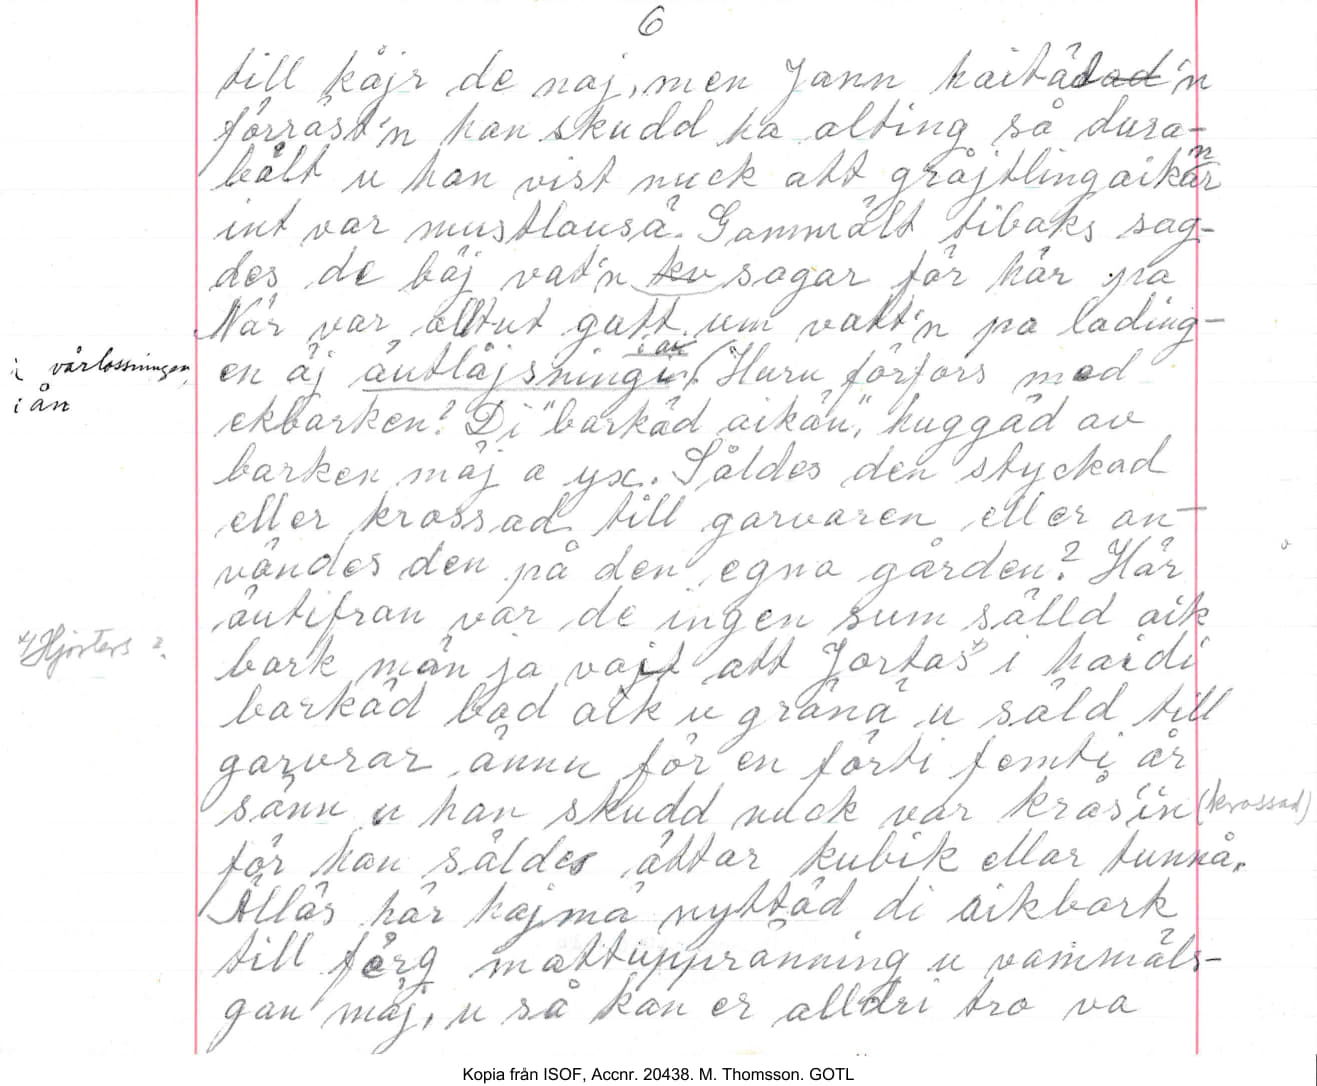 6
till kåjr de naj, men Jann haitädad'n
förräst'n han skudd ha alting så dura-
bält u han vist nuck att gråjtlingaikän
int var mustlausä. Gammält tibaks sag-
des de båj vat'n ku sagar för här pa
När var alltut gatt um vatt'n pa lading-
en äj äutlåjsningi i av (Huru förfors med
i vårlossningen
i ån
ekbarken? Di "barkäd aikän", huggäd av
barken mäj a yx. Såldes den styckad
eller krossad till garvaren eller an-
vändes den på den egna gården? Här
äutifran var de ingen sum sälld aik
bark män ja vajt att Jartas i haidi
Hjorters ?
barkäd bad aik u gränä u säld till
garvrar ännu för en förti femti år
sänn u han skudd nuck var kråsin (krossad)
för han såldes ättar kubik ellar tunnå.
Älläs här hajmä nyttäd di aikbark
till färg mattuppränning u vammäls-
gan mäj, u så kan er alldri tro va
Kopia från ISOF, Accnr. 20438. M. Thomsson. GOTL